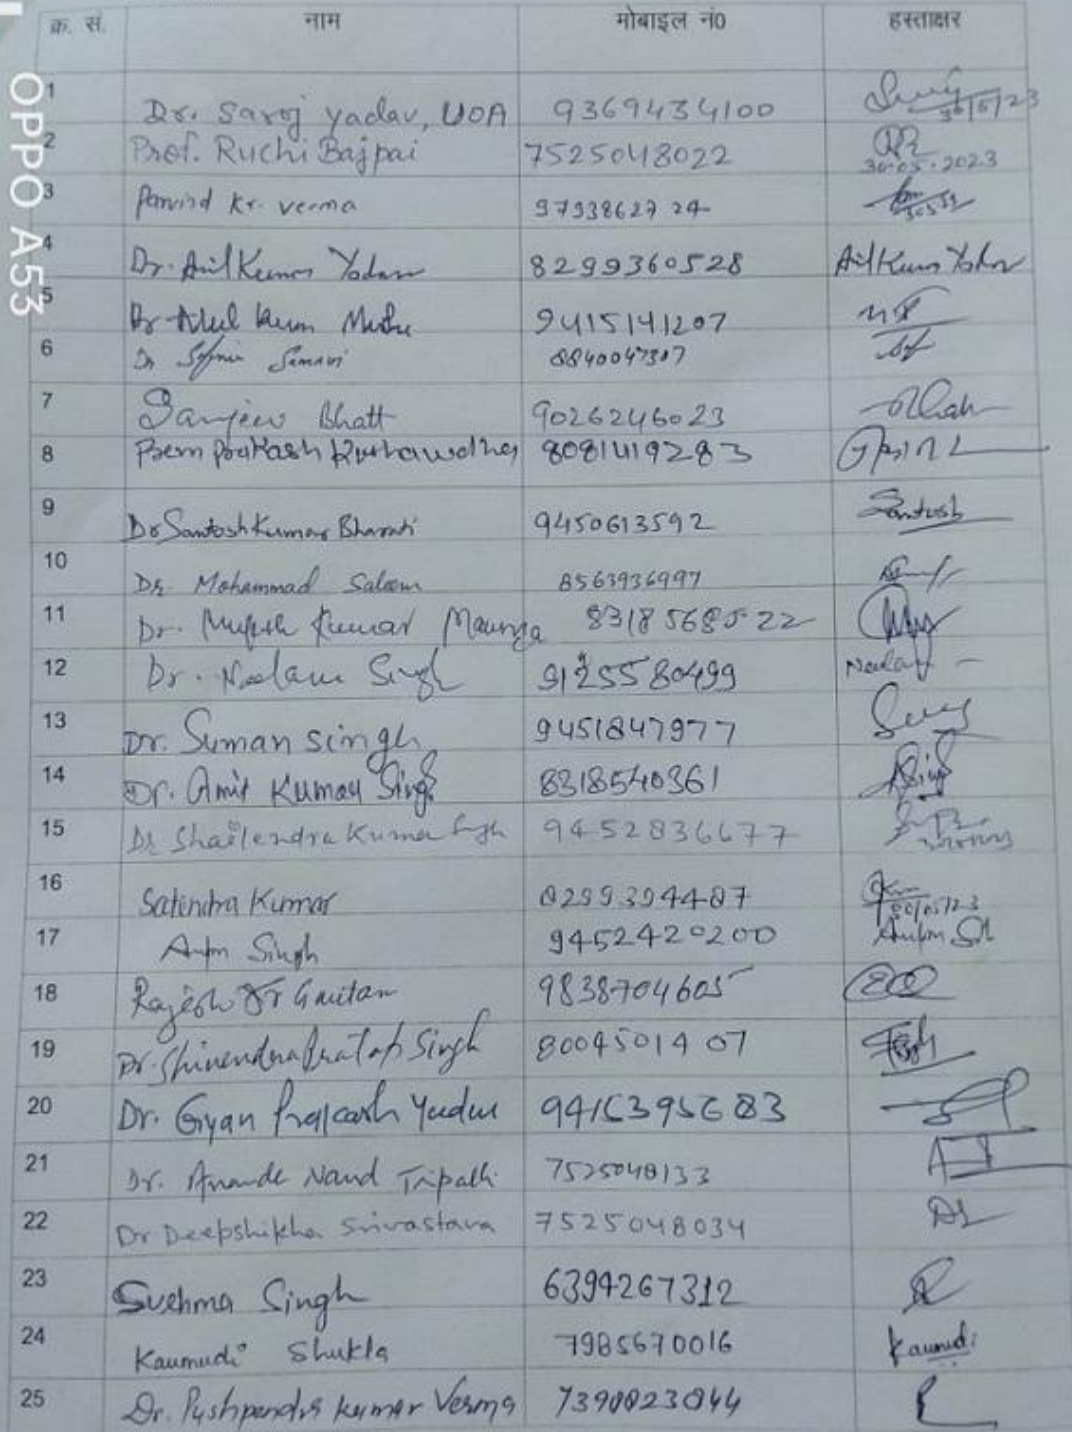 क्र. सं. नाम मोबाइल नं0 हस्ताक्षर
OPPO A53
1 Dr. Saroj yadav, UOA 9369434100
2 Prof. Ruchi Bajpai 7525048022 30.05.2023
3 Parvind Kr. verma 9793862724
4 Dr. Anil Kumar Yadav 8299360528 Anil Kumar Yadav
5 Dr 9415141207
6 Dr 8840047307
7 Sanjeev Bhatt 9026246023
8 Prem Prakash Kushawaha 8081419283
9 Dr Santosh Kumar Bharati 9450613592 Santosh
10 Dr. Mohammad Saleem 8563936997
11 Dr. Mukesh Kumar Maurya 8318568522
12 Dr. Neelam Singh 9125580499
13 Dr. Suman singh 9451847977
14 Dr. Amit Kumar Singh 8318540361
15 Dr Shailendra Kumar Singh 9452836677
16 Satendra Kumar 8299394487 30/05/23
17 Singh 9452420200
18 Rajesh Kr Gautam 9838704605
19 Dr. Shivendra Pratap Singh 8004501407
20 Dr. Gyan Prakash Yadav
21 Dr. Anande Nand Tripathi 7525048133
22 Dr Deepshikha Srivastava 7525048034
23 Sushma Singh 6394267312
24 Kaumudi Shukla 7985670016 Kaumudi
25 Dr. Pushpendra Kumar Verma 7390823044